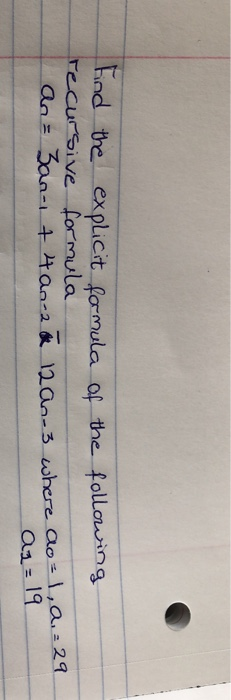 Find the explicit formula of the following
recursive formula
an = 3an-1 + 4an-2 - 12an-3 where a0 = 1, a1 = 29
a2 = 19